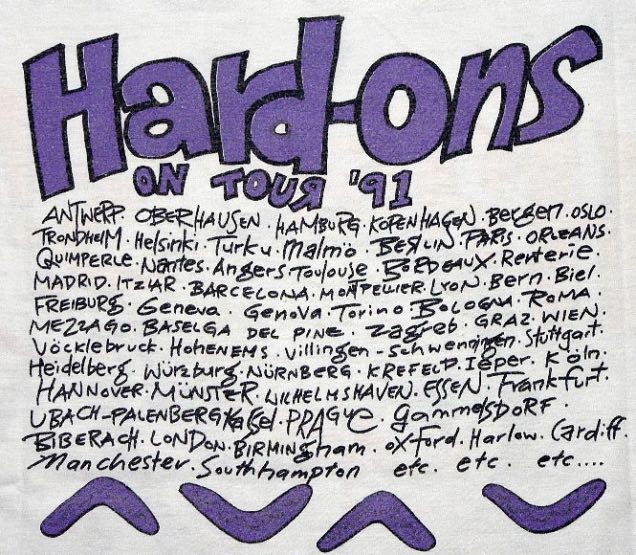 Hard-ons
ON TOUR '91
ANTWERP. OBERHAUSEN. HAMBURG. KOPENHAGEN. Bergen. OSLO.
TRONDHEIM. Helsinki. Turku. Malmö. BERLIN. PARIS. ORLEANS.
QUIMPERLE. Nantes. Angers Toulouse. BORDEAUX. Renterie.
MADRID. ITZIAR. BARCELONA. MONTPELLIER. LYON. Bern. Biel.
FREIBURG. Geneva. Genova. Torino. BOLOGNA. ROMA.
MEZZAGO. BASELGA DEL PINE. Zagreb. GRAZ. WIEN.
Vöcklebruck. HOHENEMS. Villingen-Schwenningen. Stuttgart.
Heidelberg. Würzburg. NÜRNBERG. KREFELD. Ieper. Köln.
HANNOVER. MÜNSTER. WILHELMSHAVEN. ESSEN. Frankfurt.
UBACH-PALENBERG Kassel. PRAGUE. GammelsDORF.
BIBERACH. LONDON. BIRMINgham. OXford. Harlow. Cardiff.
Manchester. Southhampton etc. etc. etc....